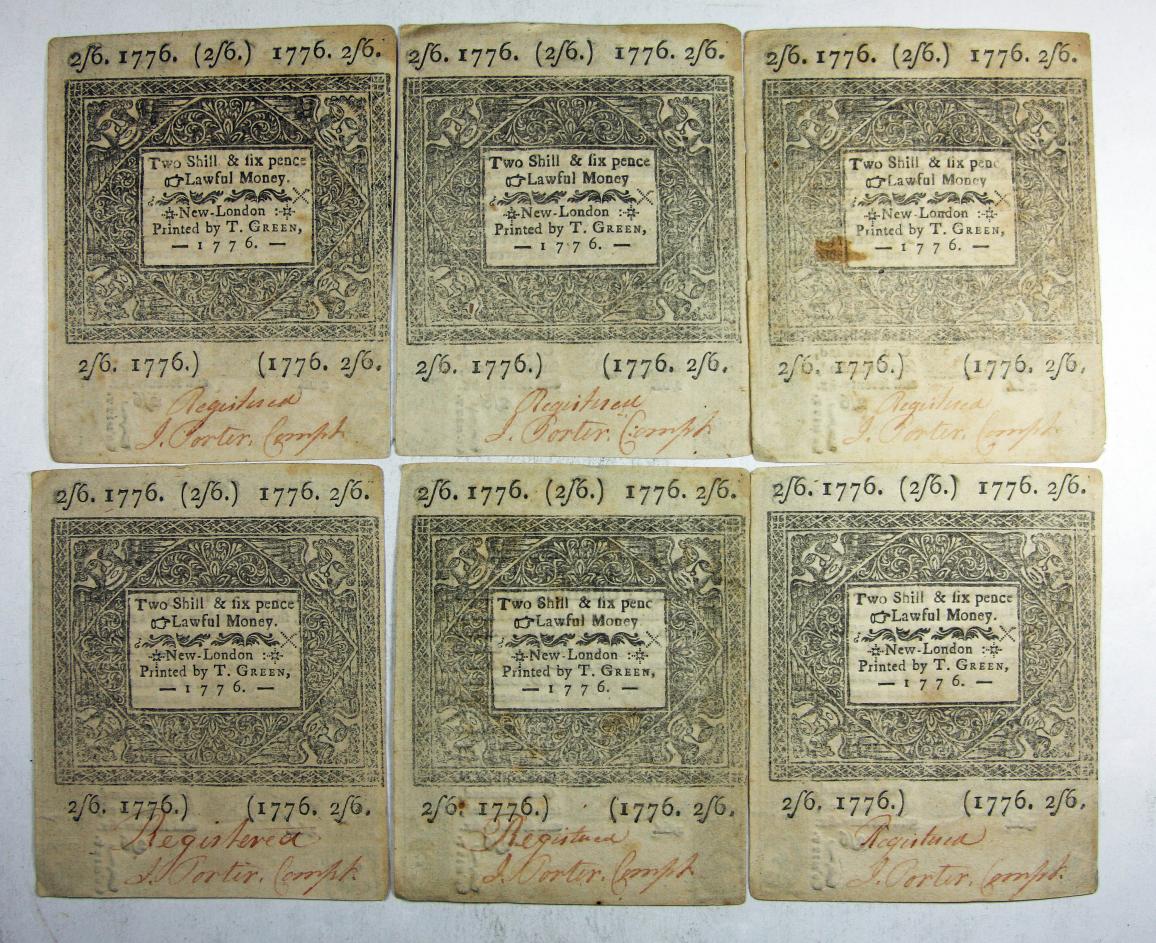 2ſ6. 1776. (2ſ6.) 1776. 2ſ6.
Two Shill & ſix pence
☞Lawful Money.
New-London
Printed by T. GREEN,
— 1 7 7 6. —
2ſ6. 1776.) (1776. 2ſ6.
Registered
J. Porter. Compt.
2ſ6. 1776. (2ſ6.) 1776. 2ſ6.
Two Shill & ſix pence
☞Lawful Money
New-London
Printed by T. GREEN,
— 1 7 7 6. —
2ſ6. 1776.) (1776. 2ſ6.
Registered
J. Porter. Compt.
2ſ6. 1776. (2ſ6.) 1776. 2ſ6.
Two Shill & ſix penc
☞Lawful Money
New-London
Printed by T. GREEN,
— 1 7 7 6. —
2ſ6. 1776.) (1776. 2ſ6.
Registered
J. Porter. Compt.
2ſ6. 1776. (2ſ6.) 1776. 2ſ6.
Two Shill & ſix pence
☞Lawful Money.
New-London
Printed by T. GREEN,
— 1 7 7 6. —
2ſ6. 1776.) (1776. 2ſ6.
Registered
J. Porter. Compt.
2ſ6. 1776. (2ſ6.) 1776. 2ſ6.
Two Shill & ſix penc
☞Lawful Money
New-London
Printed by T. GREEN,
— 1 7 7 6. —
2ſ6. 1776.) (1776. 2ſ6.
Registered
J. Porter. Compt.
2ſ6. 1776. (2ſ6.) 1776. 2ſ6.
Two Shill & ſix pence
☞Lawful Money.
New-London
Printed by T. GREEN,
— 1 7 7 6. —
2ſ6. 1776.) (1776. 2ſ6.
Registered
J. Porter. Compt.